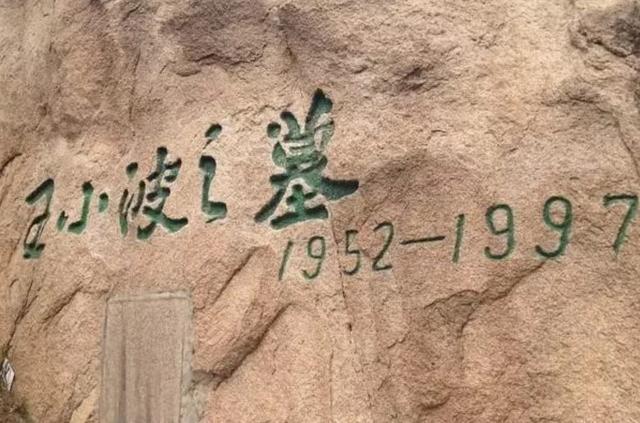 王小波之墓
1952—1997